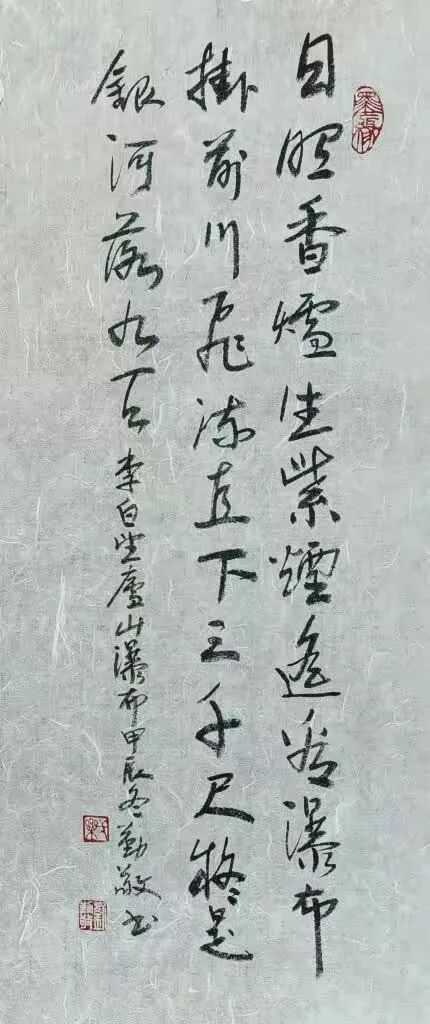 日照香爐生紫煙遙看瀑布
掛前川飛流直下三千尺疑是
銀河落九天李白望廬山瀑布甲辰冬勤敬书